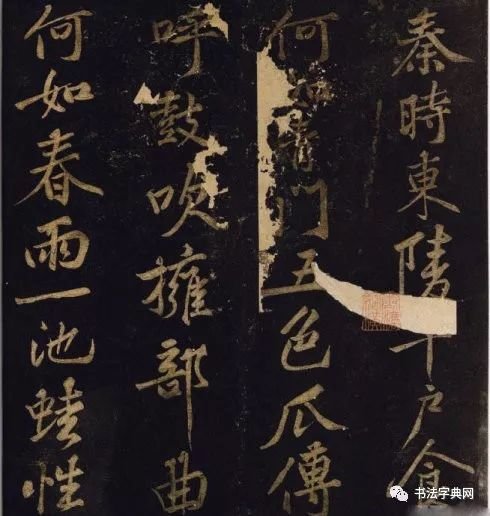 秦時東陵千戶食
何如青門五色瓜傳
呼鼓吹擁部曲
何如春雨一池蛙性
书法字典网